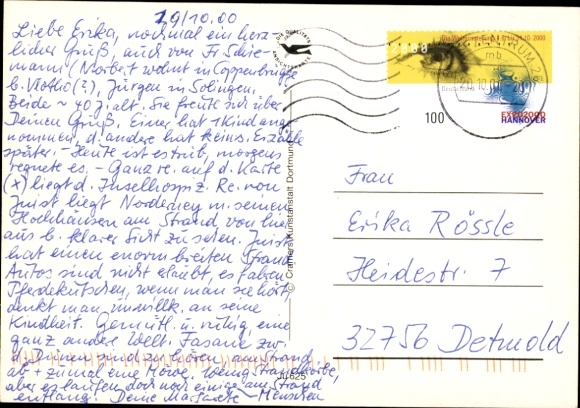 19/10.00
Liebe Erika, nochmal ein herz-
licher Gruß, auch von Fr. Schie-
mann (Norbert wohnt in Coppenbrügge
b. Vlotho (?), Jürgen in Solingen.
Beide ~ 40 J. alt. Sie freute sich über
Deinen Gruß. Einer hat 1 Kind ange-
nommen, d. andere hat keins. Erzähle
später. – Heute ist es trüb, morgens
regnete es. – Ganz re. auf d. Karte
(x) liegt d. Inselhospiz. Re. von
Juist liegt Norderney m. seinen
Hochhäusern am Strand von hier
aus b. klarer Sicht zu sehen. Juist
hat einen enorm breiten Strand
Autos sind nicht erlaubt, es fahren
Pferdekutschen, wenn man sie hört,
denkt man unwillk. an seine
Kindheit. Gemütl. u. ruhig, eine
ganz andere Welt. Fasane zw.
d. Dünen sind zu hören am Strand
ab + zu mal eine Möwe. Wenig Strandkörbe,
aber es laufen doch noch einige am Strand
entlang. Deine Margarete Menschen
DIE QUALITÄTS
ANSICHTSKARTE
© Cramers Kunstanstalt Dortmund
Ju 625
2000
20.10.00
100
EXPO2000
HANNOVER
Frau
Erika Rössle
Heidestr. 7
32756 Detmold